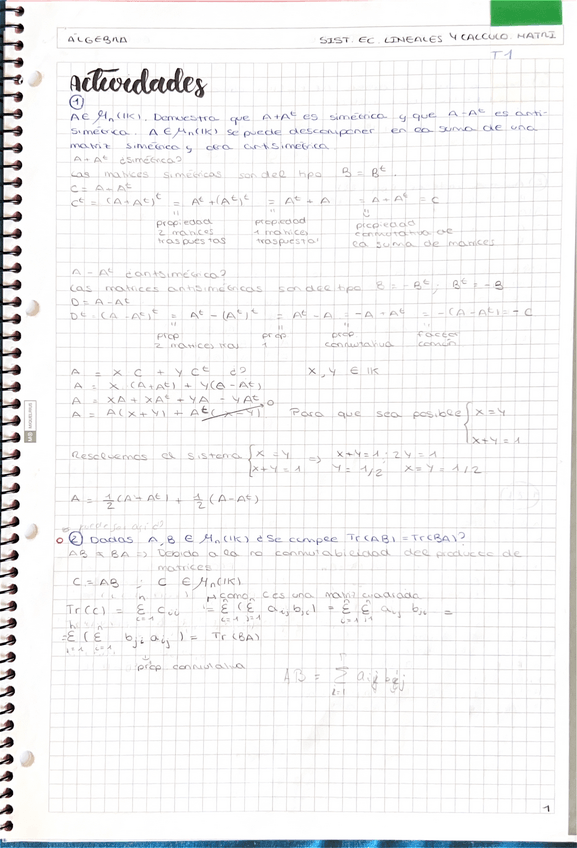 ÁLGEBRA SIST. EC. LINEALES Y CALCULO MATRI
T1
Actividades
①
A∈ Mn(IK). Demuestra que A+Aᵗ es simétrica y que A-Aᵗ es anti-
simétrica. A∈Mn(IK) se puede descomponer en la suma de una
matriz simétrica y otra antisimétrica.
A+Aᵗ ¿Simétrica?
Las matrices simétricas son del tipo B = Bᵗ.
C = A+Aᵗ
Cᵗ = (A+Aᵗ)ᵗ = Aᵗ+(Aᵗ)ᵗ = Aᵗ+A = A+Aᵗ = C
propiedad propiedad propiedad
2 matrices 1 matriz conmutativa de
traspuestas traspuesta la suma de matrices
A-Aᵗ ¿antisimétrica?
Las matrices antisimétricas son del tipo B = -Bᵗ; Bᵗ = -B
D = A-Aᵗ
Dᵗ = (A-Aᵗ)ᵗ = Aᵗ-(Aᵗ)ᵗ = Aᵗ-A = -A+Aᵗ = -(A-Aᵗ) = -C
prop prop prop factor
2 matrices tras 1 conmutativa común
A = X C + Y Cᵗ ¿? X, Y ∈ IK
A = X (A+Aᵗ) + Y(A-Aᵗ)
A = XA + XAᵗ + YA - YAᵗ
A = A(X+Y) + Aᵗ(X-Y) 0 Para que sea posible { X=Y
X+Y=1
Resolvemos el sistema { X=Y => X+Y=1; 2Y=1
X+Y=1 Y=1/2 X=Y=1/2
A = 1/2 (A+Aᵗ) + 1/2 (A-Aᵗ)
② Dadas A, B ∈ Mn(IK) ¿Se cumple Tr(AB) = Tr(BA)?
AB ≠ BA => Debido a la no conmutabilidad del producto de
matrices
C = AB ; C ∈ Mn(IK)
como C es una matriz cuadrada
Tr(C) = Σ cii = Σ (Σ aij bji) = Σ Σ aij bji =
= Σ (Σ bji aij) = Tr(BA)
prop conmutativa
AB = Σ
1